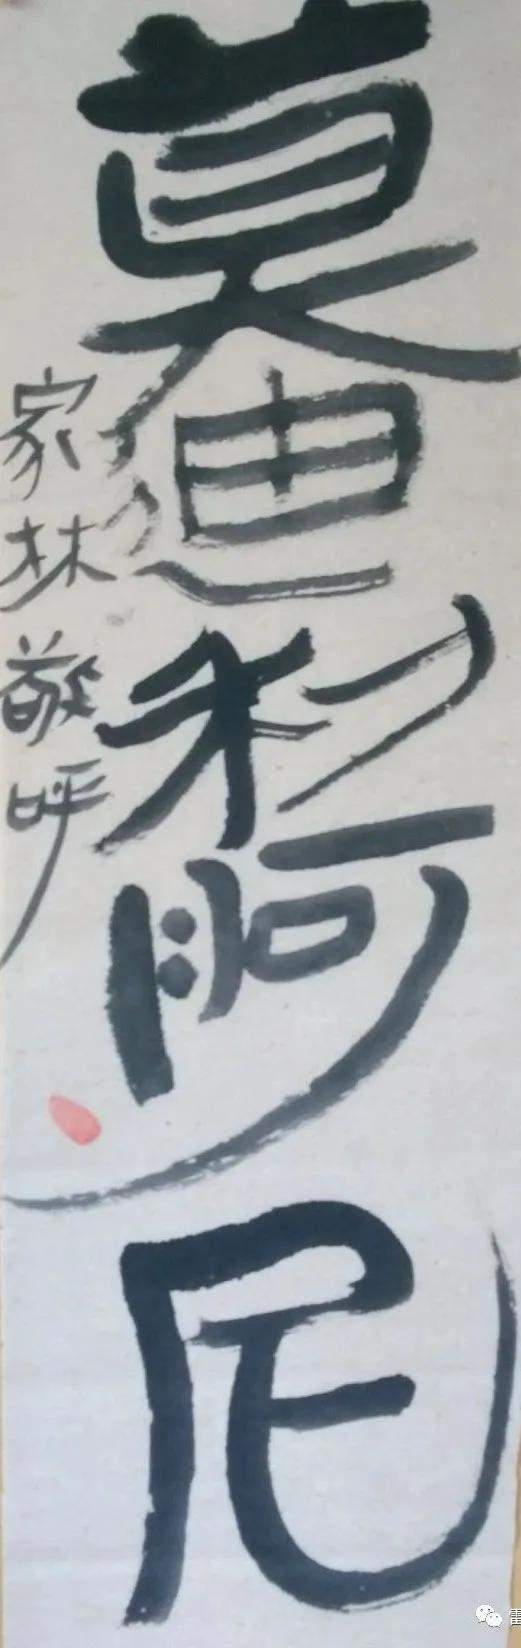 莫迪利阿尼
家林敬呼
雷